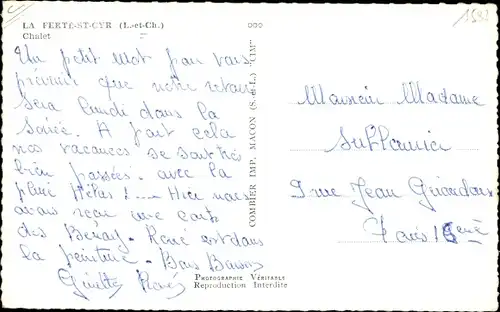 LA FERTÉ-ST-CYR (L.-et-Ch.)
Chalet
Un petit mot pour vous
prévenir que notre retour
sera lundi dans la
soirée. A part cela
nos vacances se sont très
bien passées. avec la
pluie hélas! .... Hier nous
avons reçu une carte
des Benay. René est dans
la peinture. Bons Baisers
Ginette René
COMBIER IMP. MACON (S.-et-L.) "CIM"
Monsieur Madame
rue Jean Goujon
Paris
PHOTOGRAPHIE VÉRITABLE
Reproduction Interdite